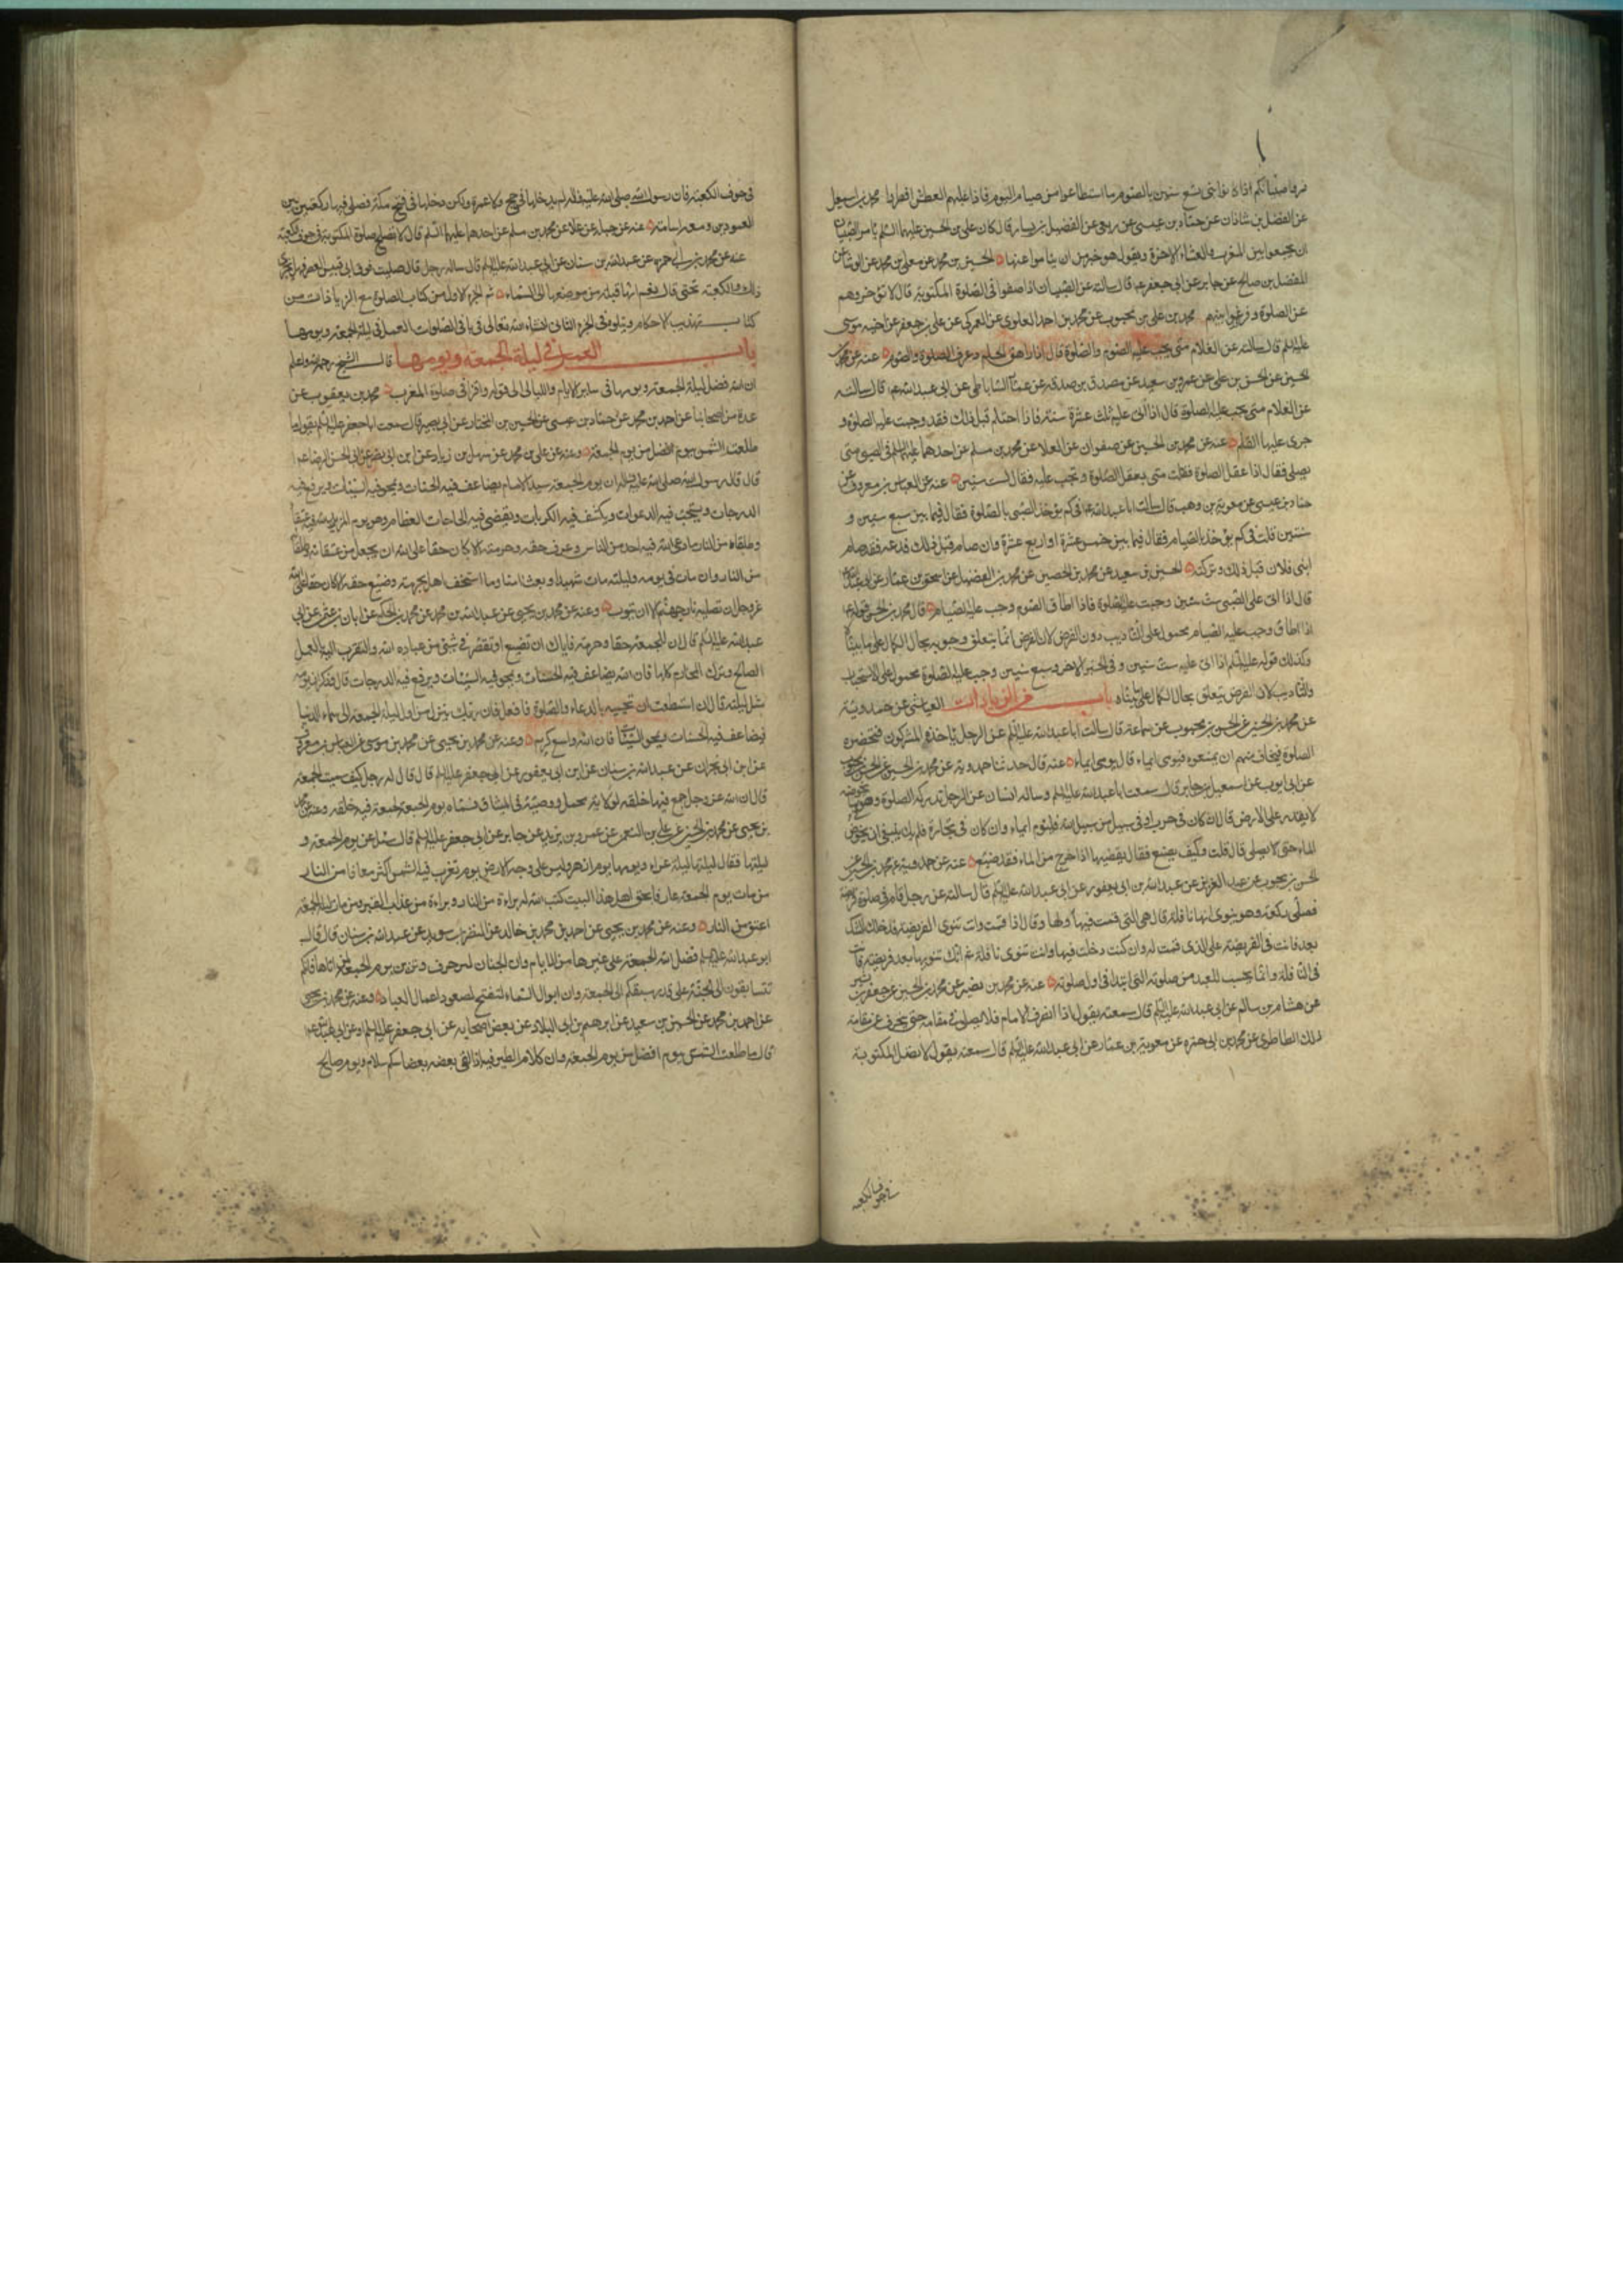 فمروا صبيانكم اذا كانوا بنى تسع سنين بالصوم ما استطاعوا من صيام اليوم فاذا غلبهم العطش افطروا محمد بن اسمعيل
عن الفضل بن شاذان عن حماد بن عيسى عن ربعى عن الفضيل بن يسار قال كان على بن الحسين عليهما السلم يامر الصبيان
ان يجمعوا بين المغرب والعشاء الاخرة ويقول هو خير من ان يناموا عنها الحسين بن محمد عن معلى بن محمد عن الوشا عن
المفضل بن صالح عن جابر عن ابى جعفر ع قال سالته عن الصبيان اذا صفوا فى الصلوة المكتوبة قال لا تؤخروهم
عن الصلوة وفرقوا بينهم محمد بن على بن محبوب عن محمد بن احمد العلوى عن العمركى عن على بن جعفر عن اخيه موسى
عليه السلم قال سالته عن الغلام متى يجب عليه الصوم والصلوة قال اذا راهق الحلم وعرف الصلوة والصوم عنه عن محمد بن
الحسين عن الحسن بن على عن عمرو بن سعيد عن مصدق بن صدقه عن عمار الساباطى عن ابى عبد الله ع قال سالته
عن الغلام متى يجب عليه الصلوة قال اذا اتى عليه ثلث عشرة سنة فاذا احتلم قبل ذلك فقد وجبت عليه الصلوة و
جرى عليه القلم عنه عن محمد بن الحسين عن صفوان عن العلا عن محمد بن مسلم عن احدهما عليهما السلم فى الصبى متى
يصلى فقال اذا عقل الصلوة فقلت متى يعقل الصلوة وتجب عليه فقال لست سنين عنه عن العباس بن معروف عن
حماد بن عيسى عن معوية بن وهب قال سالت ابا عبد الله ع فى كم يؤخذ الصبى بالصلوة فقال فيما بين سبع سنين و
ست سنين قلت فى كم يؤخذ بالصيام فقال فيما بين خمس عشرة او اربع عشرة وان صام قبل ذلك فدعه فقد صام
ابنى فلان قبل ذلك وتركته الحسين بن سعيد عن محمد بن الحصين عن محمد بن الفضيل عن اسحق بن عمار عن ابى عبد الله
قال اذا اتى على الصبى ست سنين وجبت عليه الصلوة فاذا اطاق الصوم وجب عليه الصيام قال محمد بن الحسن قوله ع
اذا اطاق وجب عليه الصيام محمول على التاديب دون الفرض لان الفرض انما يتعلق وجوبه بحال الكمال على ما بيناه
وكذلك قوله عليه السلم اذا اتى عليه ست سنين وفى الخبر الاخر وسبع سنين وجب عليه الصلوة محمول على الاستحباب
والتاديب لان الفرض يتعلق بحال الكمال على ما بيناه باب من الزيادات العياشى عن حمدوية
عن محمد بن الحسين عن الحسن بن محبوب عن سماعة قال سالت ابا عبد الله عليه السلم عن الرجل ياخذه المشركون فتحضره
الصلوة فيخاف منهم ان يمنعوه فيومى ايماء قال يومى ايماء عنه قال حدثنا حمدوية عن محمد بن الحسين عن الحسن بن محبوب
عن ابى ايوب عن اسمعيل بن جابر قال سمعت ابا عبد الله عليه السلم وساله انسان عن الرجل تدركه الصلوة وهو فى ماء يخوضه
لا يقدر على الارض قال ان كان فى حرب او فى سبيل من سبيل الله فليوم ايماء وان كان فى تجارة فلم يك ينبغى ان يخوض
الماء حتى لا يصلى قال قلت وكيف يصنع فقال يقضيها اذا خرج من الماء فقد ضيع عنه عن حمدوية عن محمد بن الحسين عن
الحسن بن محبوب عن عبد العزيز عن عبد الله بن ابى يعفور عن ابى عبد الله عليه السلم قال سالته عن رجل قام فى صلوة فريضة
فصلى ركعة وهو ينوى انها نافلة قال هى التى قمت فيها ولها وقال اذا قمت وانت تنوى الفريضة فدخلك الشك
بعد فانت فى الفريضة على الذى قمت له وان كنت دخلت فيها وانت تنوى نافلة ثم انك تنويها بعد فريضة فانت
فى النافلة وانما يحسب للعبد من صلوته التى ابتدا فى اول صلوته عنه عن محمد بن نصير عن محمد بن الحسين عن جعفر بن بشير
عن هشام بن سالم عن ابى عبد الله عليه السلم قال سمعته يقول اذا انصرف الامام فلا يصلى فى مقامه حتى ينحرف عن مقامه
ذلك الطاطرى عن محمد بن ابى حمزه عن معوية بن عمار عن ابى عبد الله عليه السلم قال سمعته يقول لا تصل المكتوبة
فى جوف الكعبه
فى جوف الكعبة فان رسول الله صلى الله عليه واله لم يدخلها فى حج ولا عمرة ولكن دخلها فى فتح مكة فصلى فيها ركعتين بين
العمودين ومعه اسامة عنه عن جبلة عن علا عن محمد بن مسلم عن احدهما عليهما السلم قال لا تصلح صلوة المكتوبة فى جوف الكعبة
عنه عن محمد بن ابى حمزه عن عبد الله بن سنان عن ابى عبد الله عليه السلم قال ساله رجل قال صليت فوق ابى قبيس العصر فهل يجزى
ذلك والكعبة تحتى قال نعم انها قبلة من موضعها الى السماء تم الجزء الاول من كتاب الصلوة مع الزيادات من
كتاب تهذيب الاحكام ويتلوه فى الجزء الثانى انشاء الله تعالى فى باقى الصلوات العمل فى ليلة الجمعة ويومها
باب العمل فى ليلة الجمعة ويومها قال الشيخ رحمه الله واعلم
ان الله فضل ليلة الجمعة ويومها فى ساير الايام والليالى الى قوله واقرا فى صلوة المغرب محمد بن يعقوب عن
عدة من اصحابنا عن احمد بن محمد عن حماد بن عيسى عن الحسين بن المختار عن ابى بصير قال سمعت ابا جعفر عليه السلم يقول ما
طلعت الشمس بيوم افضل من يوم الجمعة وعنه عن على بن محمد عن سهل بن زياد عن ابن ابى نصر عن ابى الحسن الرضا ع
قال قال رسول الله صلى الله عليه واله ان يوم الجمعة سيد الايام يضاعف فيه الحسنات ويمحو فيه السيئات ويرفع فيه
الدرجات ويستجيب فيه الدعوات ويكشف فيه الكربات ويقضى فيه الحاجات العظام وهو يوم المزيد لله فيه عتقا
وطلقاء من النار ما دعا الله فيه احد من الناس وعرف حقه وحرمته الا كان حقا على الله ان يجعل من عتقائه وطلقائه
من النار وان مات فى يومه وليلته مات شهيدا وبعث امنا وما استخف احد بحرمته وضيع حقه الا كان حقا على الله
عز وجل ان تصليه نار جهنم الا ان يتوب وعنه عن محمد بن يحيى عن عبد الله بن محمد عن على بن الحكم عن ابان بن عثمن عن ابى
عبد الله عليه السلم قال ان للجمعة حقا وحرمة فاياك ان تضيع او تقصر فى شئ من عبادة الله والتقرب اليه بالعمل
الصالح وترك المحارم كلها فان الله يضاعف فيه الحسنات ويمحو فيه السيئات ويرفع فيه الدرجات قال وذكر ان يومه
مثل ليلته قال ان استطعت ان تحييه بالدعاء والصلوة فافعل فان ربك ينزل من اول ليلة الجمعة الى سماء الدنيا
فيضاعف فيه الحسنات ويمحو السيئات فان الله واسع كريم وعنه عن محمد بن يحيى عن محمد بن موسى عن العباس بن معروف
عن ابن ابى نجران عن عبد الله بن سنان عن ابن ابى يعفور عن ابى جعفر عليه السلم قال قال له رجل كيف سميت الجمعة
قال ان الله عز وجل جمع فيها خلقه لولاية محمد ووصيه فى الميثاق فسماه يوم الجمعة لجمعه فيه خلقه وعنه عن محمد
بن يحيى عن محمد بن الحسين عن على بن النعمن عن عمر بن يزيد عن جابر عن ابى جعفر عليه السلم قال سئل عن يوم الجمعة و
ليلتها فقال ليلتها ليلة غراء ويومها يوم ازهر وليس على وجه الارض يوم تغرب فيه الشمس اكثر معافا من النار
من مات يوم الجمعة عارفا بحق اهل هذا البيت كتب الله له براءة من النار وبراءة من عذاب القبر ومن مات ليلة الجمعة
اعتق من النار وعنه عن محمد بن يحيى عن احمد بن محمد بن خالد عن النضر بن سويد عن عبد الله بن سنان قال قال
ابو عبد الله عليه السلم فضل الله الجمعة على غيرها من الايام وان الجنان لتزخرف وتزين يوم الجمعة لمن اتاها فانكم
تتسابقون الى الجنة على قدر سبقكم الى الجمعة وان ابواب السماء لتفتح لصعود اعمال العباد وعنه عن محمد بن يحيى
عن احمد بن محمد عن الحسين بن سعيد عن ابرهيم بن ابى البلاد عن بعض اصحابه عن ابى جعفر عليه السلم او عن ابى عبد الله ع
قال ما طلعت الشمس بيوم افضل من يوم الجمعة وان كلام الطير فيه اذا التقى بعضه بعضا سلام سلام ويوم صالح